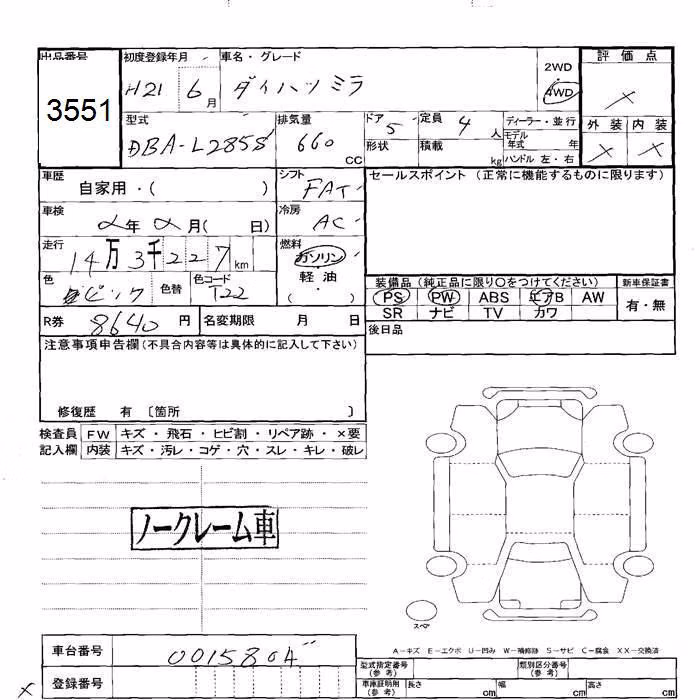 出品番号
3551
初度登録年月 車名・グレード
H21 6月 ダイハツミラ
2WD
・
4WD
評価点
×
外装 内装
× ×
型式 排気量 ドア 定員 ディーラー・並行
DBA-L285S 660 cc 5 4 人
形状 積載 kg
モデル年式 年
ハンドル 左・右
車歴 シフト
自家用・( ) FAT
セールスポイント (正常に機能するものに限ります)
車検 冷房
年 月( 日) AC
走行 燃料
14万3千227km ガソリン
・
軽油
( )
色 色替 色コード
ピンク T22
装備品 (純正品に限り○をつけてください) 新車保証書
PS PW ABS エアB AW 有・無
SR ナビ TV カワ
R券 8640円 名変期限 月 日
後日品
注意事項申告欄(不具合内容等は具体的に記入して下さい)
修復歴 有 〔箇所 〕
検査員 FW キズ・飛石・ヒビ割・リペア跡・×要
記入欄 内装 キズ・汚レ・コゲ・穴・スレ・キレ・破レ
ノークレーム車
スペア
A-キズ E-エクボ U-凹み W-補修跡 S-サビ C-腐食 XX-交換済
車台番号 0015804
登録番号
×
型式指定番号(参考) 類別区分番号(参考)
車庫証明用(参考) 長さ cm 幅 cm 高さ cm